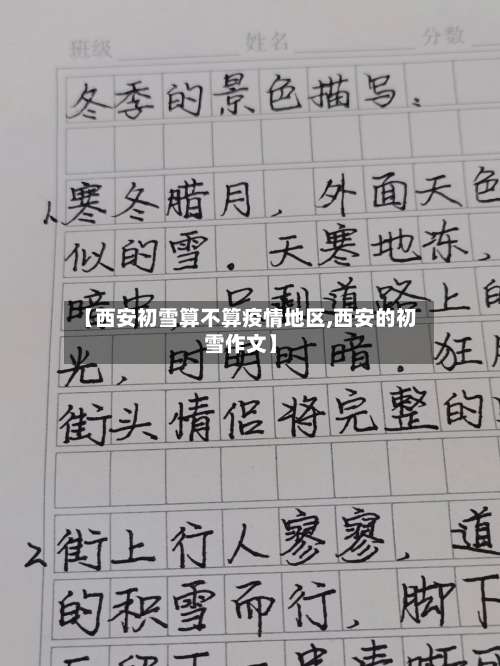 班级 姓名 分数
冬季的景色描写：
1、寒冬腊月，外面天色
似的雪．天寒地冻，
暗中 只剩道路上的
【西安初雪算不算疫情地区,西安的初
雪作文】
光，时明时暗．狂
街头情侣将完整的
2、街上行人寥寥，道
的积雪而行，脚下